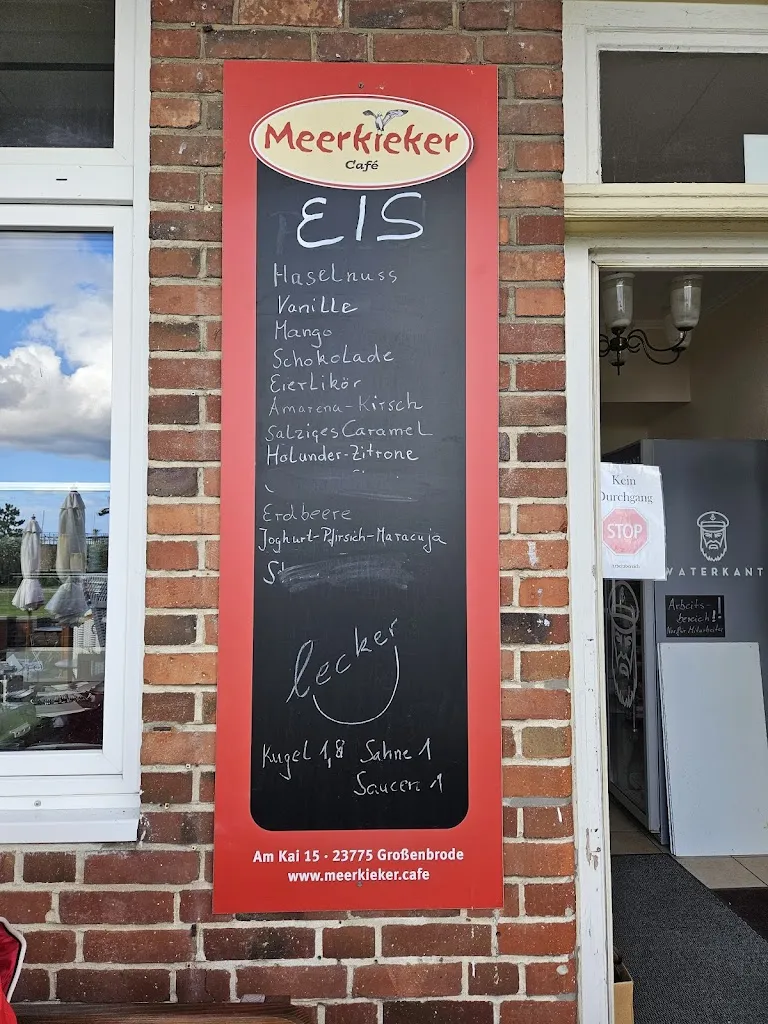 Meerkieker
Café
EIS
Haselnuss
Vanille
Mango
Schokolade
Eierlikör
Amarena-Kirsch
Salziges Caramel
Holunder-Zitrone
Erdbeere
Joghurt-Pfirsich-Maracuja
lecker
Kugel 1,8 Sahne 1
Saucen 1
Am Kai 15 · 23775 Großenbrode
www.meerkieker.cafe
Kein
Durchgang
STOP
WATERKANT
Arbeits-
bereich!
Nur für Mitarbeiter